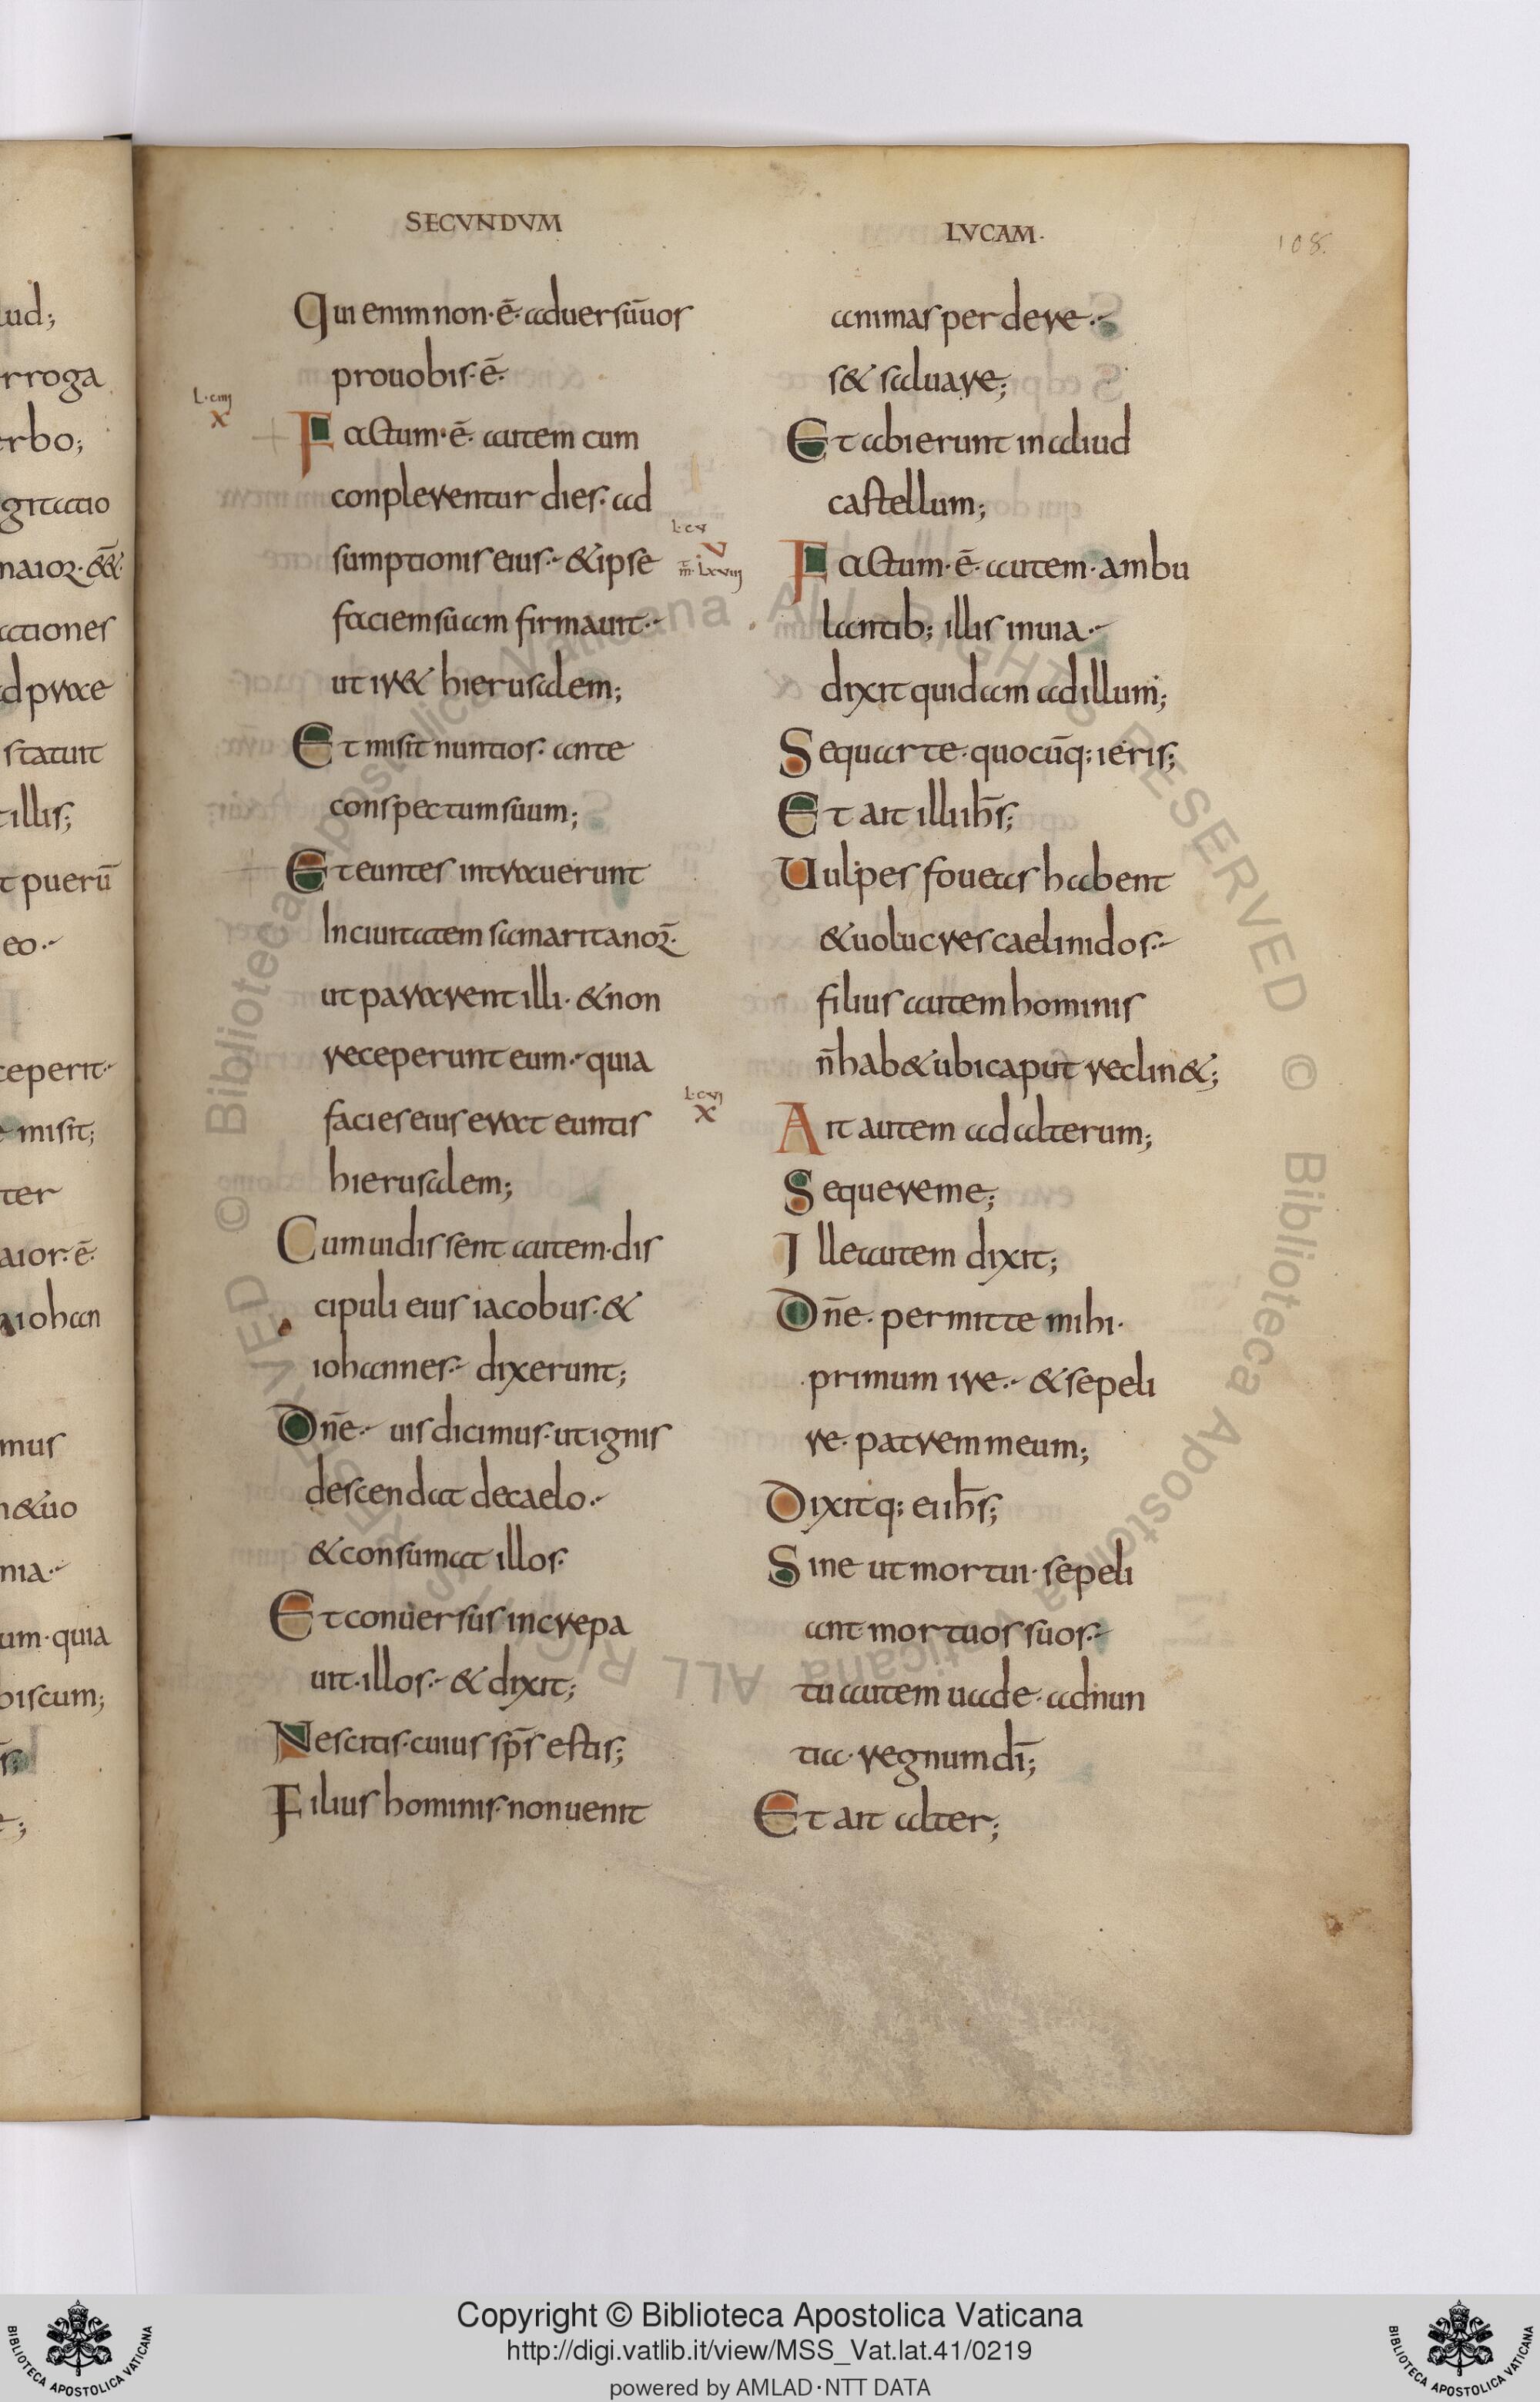 SECVNDVM
Qui enim non· ē· aduersū uos
pro uobis· ē·
L·ciiij
X
Factum· ē· autem cum
conplerentur dies· ad
sumptionis eius·- & ipse
faciem suam firmauit·-
ut ir& hierusalem;
Et misit nuntios· ante
conspectum suum;
Et euntes intrauerunt
In ciuitatem samaritanoꝝ·
ut pararent illi· & non
receperunt eum·- quia
facies eius erat euntis
hierusalem;
Cum uidissent autem· dis
cipuli eius iacobus· &
iohannes·- dixerunt;
Dn̄e·- uis dicimus· ut ignis
descendat de caelo·-
& consumat illos·
Et conuersus increpa
uit· illos·- & dixit;
Nescitis· cuius sp̄s estis;
Filius hominis· non uenit
LVCAM·
108·
animas perdere·-
s& saluare;
Et abierunt in aliud
castellum;
L·cv
v
m̄·Lxviij
Factum· ē· autem· ambu
lantib; illis in uia·-
dixit quidam ad illum;
Sequar te· quocūq; ieris;
Et ait illi ih̄s;
Uulpes foueas habent
& uolucres caeli nidos·-
filius autem hominis
n̄ hab& ubi caput reclin&;
L·cvj
X
Ait autem ad alterum;
Sequere me;
Ille autem dixit;
Dn̄e· permitte mihi·
primum ire·- & sepeli
re· patrem meum;
Dixitq; ei ih̄s;
Sine ut mortui· sepeli
ant· mortuos suos·-
tu autem uade· adnun
tia· regnum dī;
Et ait alter;
Copyright © Biblioteca Apostolica Vaticana
http://digi.vatlib.it/view/MSS_Vat.lat.41/0219
powered by AMLAD·NTT DATA